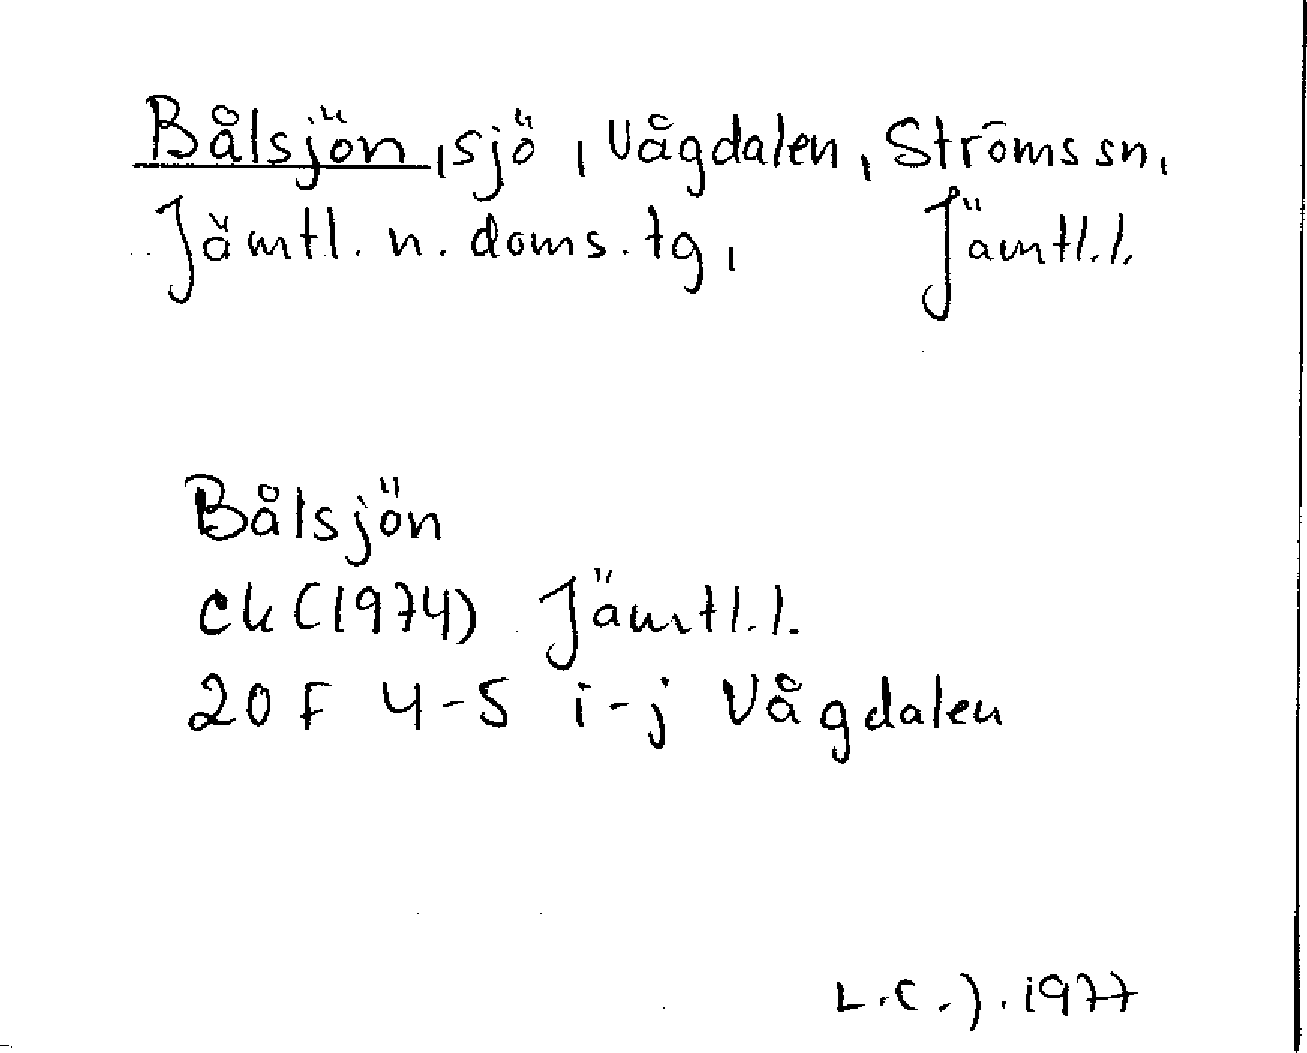 Bålsjön, sjö, Vågdalen, Ströms sn,
Jämtl. n. doms. tg, Jämtl. l.
Bålsjön
ek (1974) Jämtl. l.
20 F 4-5 i-j Vågdalen
L.C.J. 1977